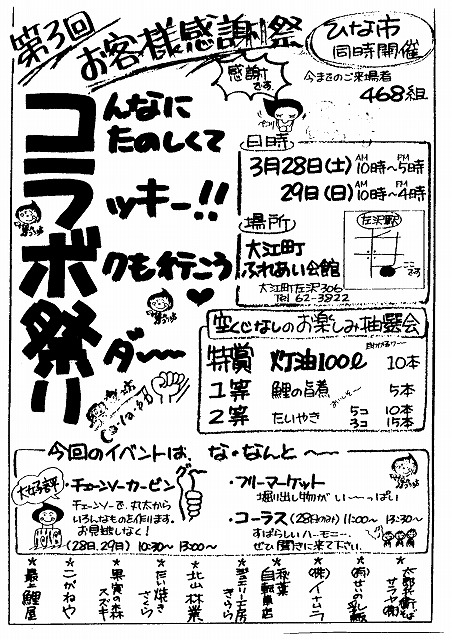 第3回
お客様感謝祭
ひな市
同時開催
感謝
です。
今までのご来場者
468組
ペコリ
コラボ祭り
こんなに
たのしくて
ラッキー!!
ボクも行こう
祭りダ〜〜
日時
3月28日(土) AM10時〜PM5時
29日(日) AM10時〜PM4時
場所
大江町
ふれあい会館
大江町左沢306
Tel 62-3822
左沢駅
ココ
空くじなしのお楽しみ抽選会
特賞 灯油100ℓ 10本
1等 鯉の旨煮 5本
2等 たいやき 5コ 10本
3コ 15本
今回のイベントは、な・なんと〜〜
大好評
・チェーンソーカービング〜
チェーンソーで、丸太から
いろんなものを作ります。
お見逃しなく!
(28日、29日) 10:30〜 13:00〜
・フリーマーケット
掘り出し物がい〜〜っぱい
・コーラス (28日のみ) 11:00〜 13:30〜
すばらしいハーモニー。
ぜひ聞きに来て下さい。
★太郎兵衛そば
サラヤ(有)
★(有)せいの乳販
★(株)イトムラ
★秋葉
自転車店
★ジュエリー工房
きむら
★北山林業
★たい焼き
さくら
★果実の森
スズキ
★こがねや
★最上鯉屋